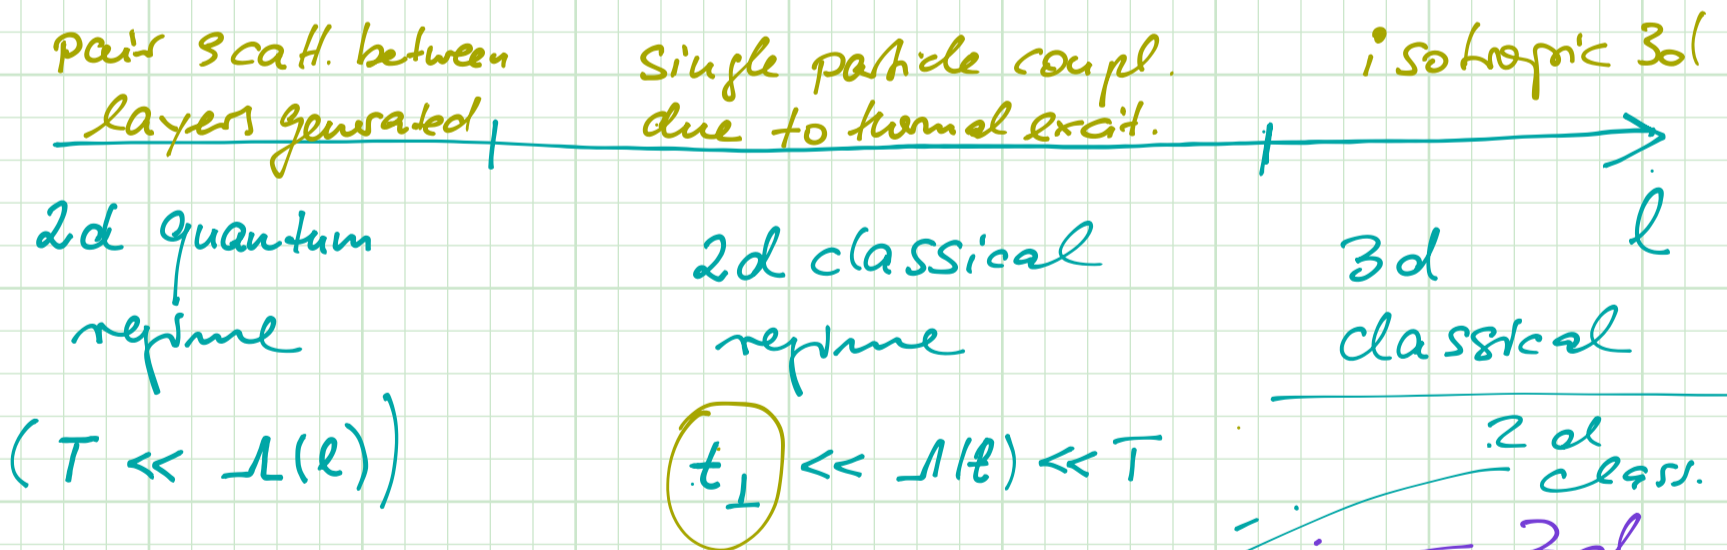 pair scatt. between
layers generated
single particle coupl.
due to thermal excit.
isotropic 3d
2d quantum
regime
(T << Λ(l))
2d classical
regime
t⊥ << Λ(l) << T
l
3d
classical
2d
class.